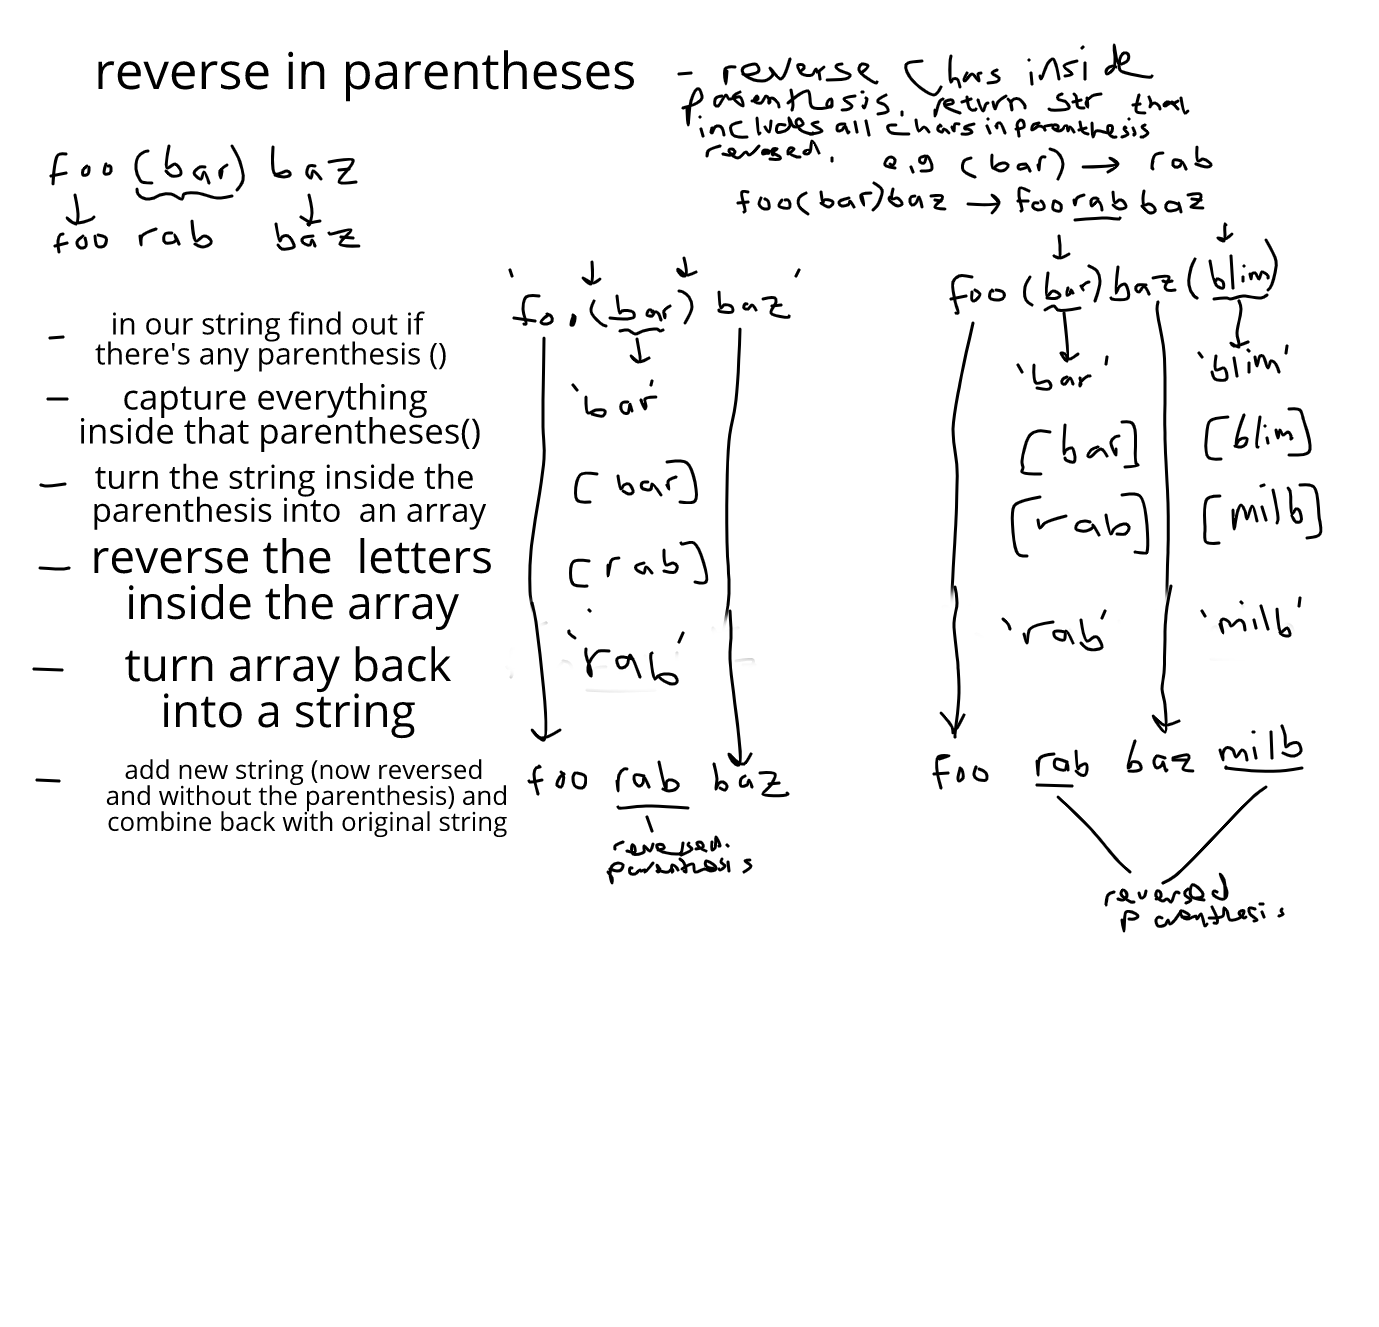 reverse in parentheses
- reverse chars inside
parenthesis. return str that
includes all chars in parenthesis
reversed. e.g (bar) → rab
foo(bar)baz → foorabbaz
foo (bar) baz
foo rab baz
- in our string find out if
there's any parenthesis ()
- capture everything
inside that parentheses()
- turn the string inside the
parenthesis into an array
- reverse the letters
inside the array
- turn array back
into a string
- add new string (now reversed
and without the parenthesis) and
combine back with original string
'foo(bar) baz'
'bar'
[bar]
[rab]
'rab'
foo rab baz
reversed.
parenthesis
foo (bar) baz (blim)
'bar' 'blim'
[bar] [blim]
[rab] [milb]
'rab' 'milb'
foo rab baz milb
reversed
parenthesis